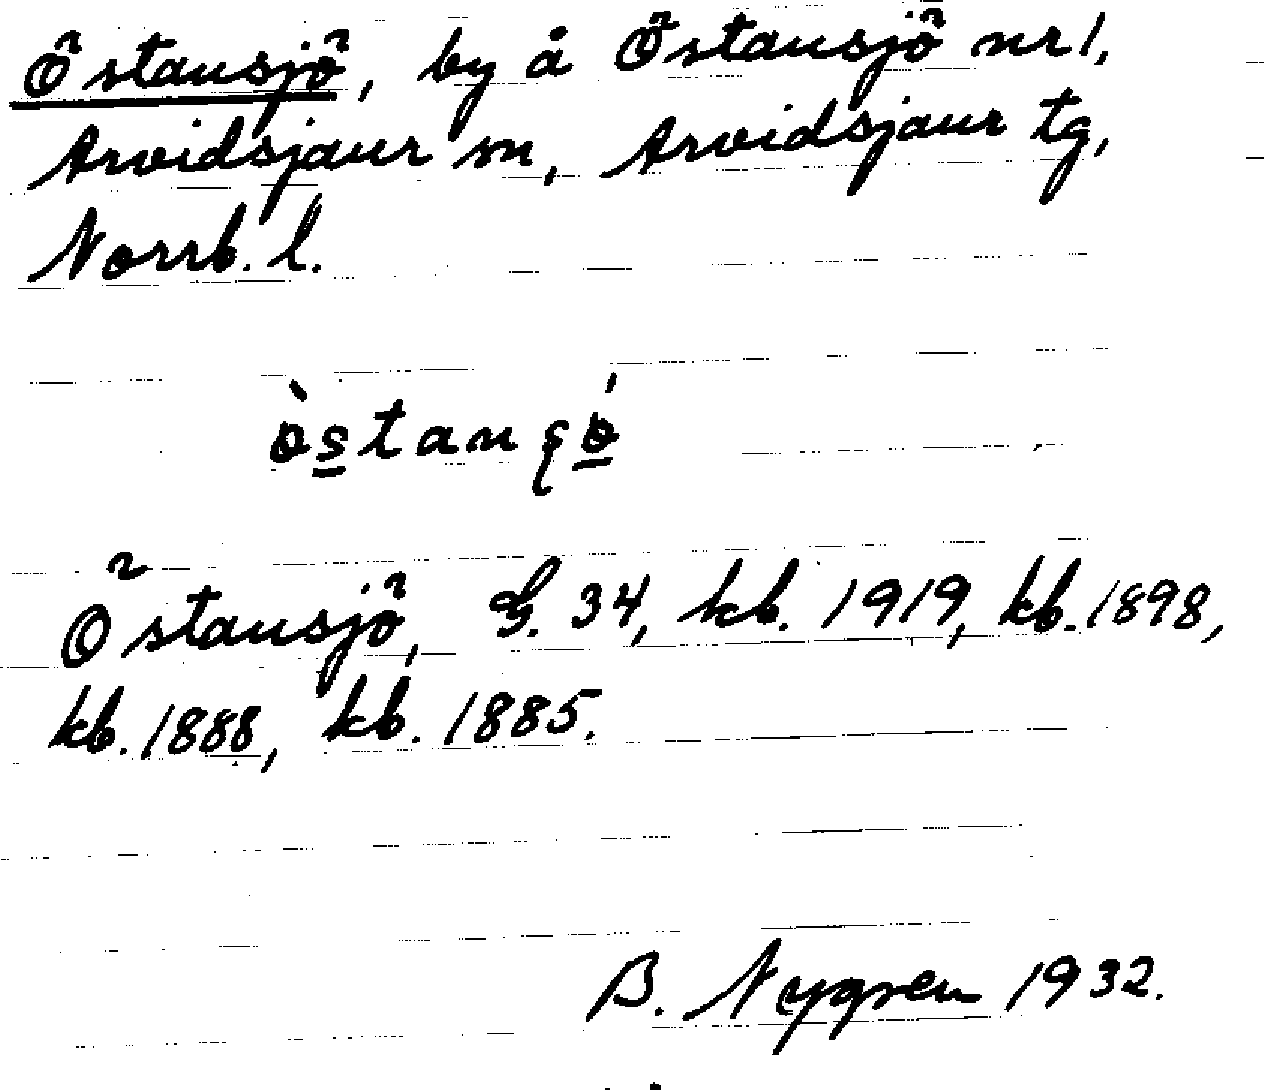 Östansjö, by å Östansjö nr 1,
Arvidsjaur sn, Arvidsjaur tg,
Norrb. l.
Östansjö, G. 34, kb. 1919, kb. 1898,
kb. 1888, kb. 1885.
B. Nygren 1932.